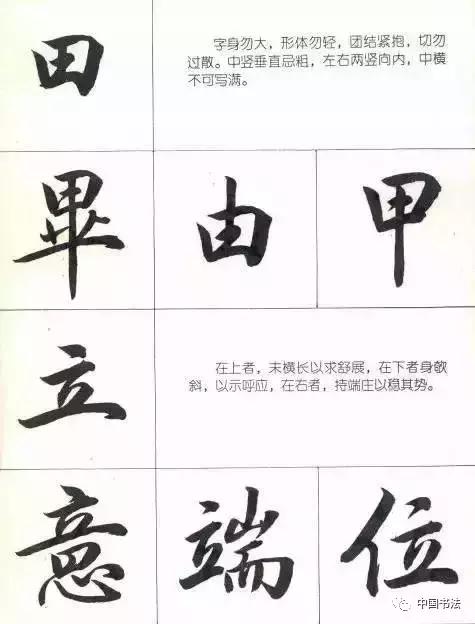 田
字身勿大，形体勿轻，团结紧抱，切勿
过散。中竖垂直忌粗，左右两竖向内，中横
不可写满。
畢 由 甲
立
在上者，末横长以求舒展，在下者身欹
斜，以示呼应，在右者，持端庄以稳其势。
意 端 位
中国书法